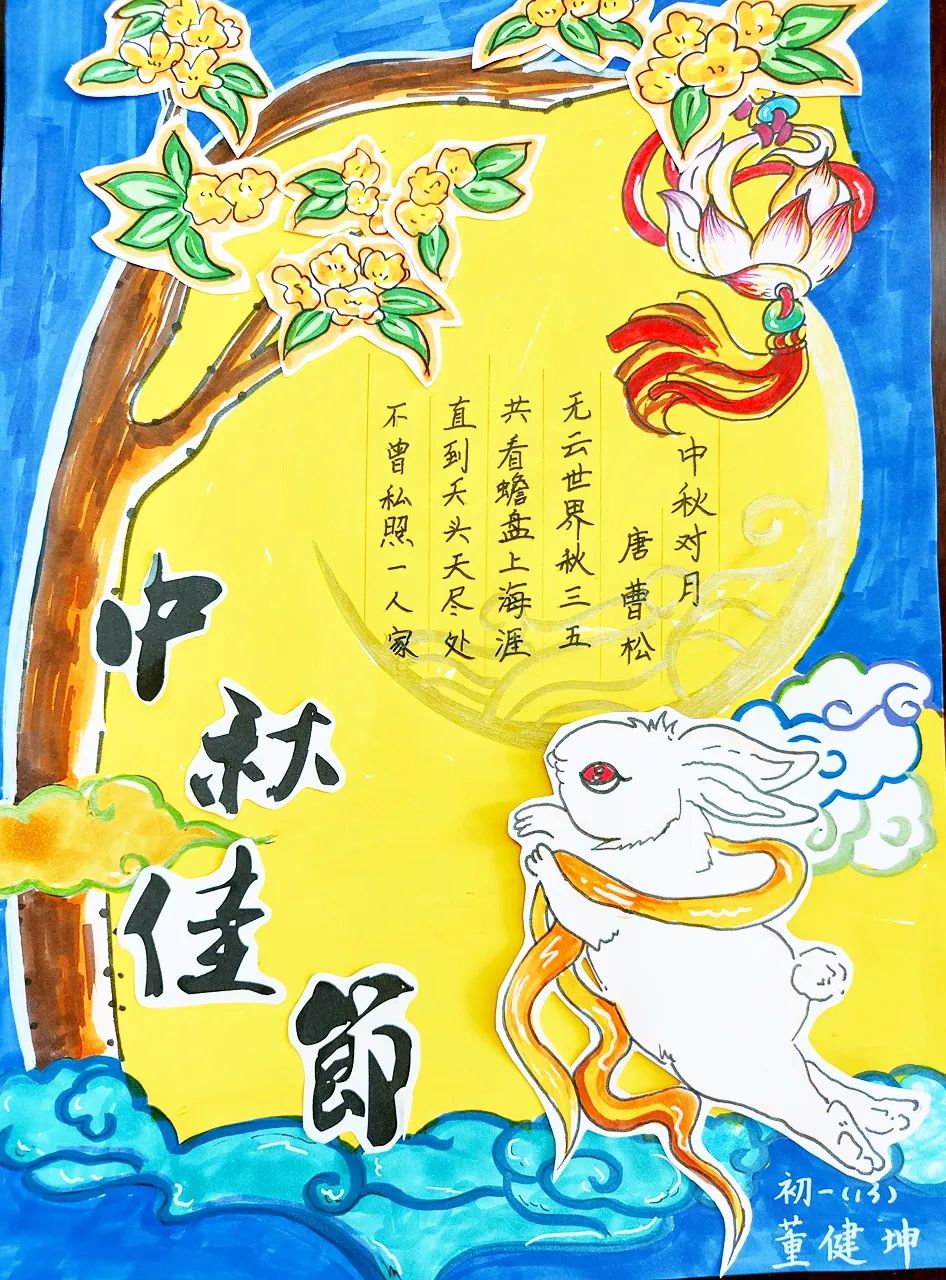 中秋对月
唐 曹松
无云世界秋三五
共看蟾盘上海涯
直到天头天尽处
不曾私照一人家
中秋佳節
初一(13)
董健坤